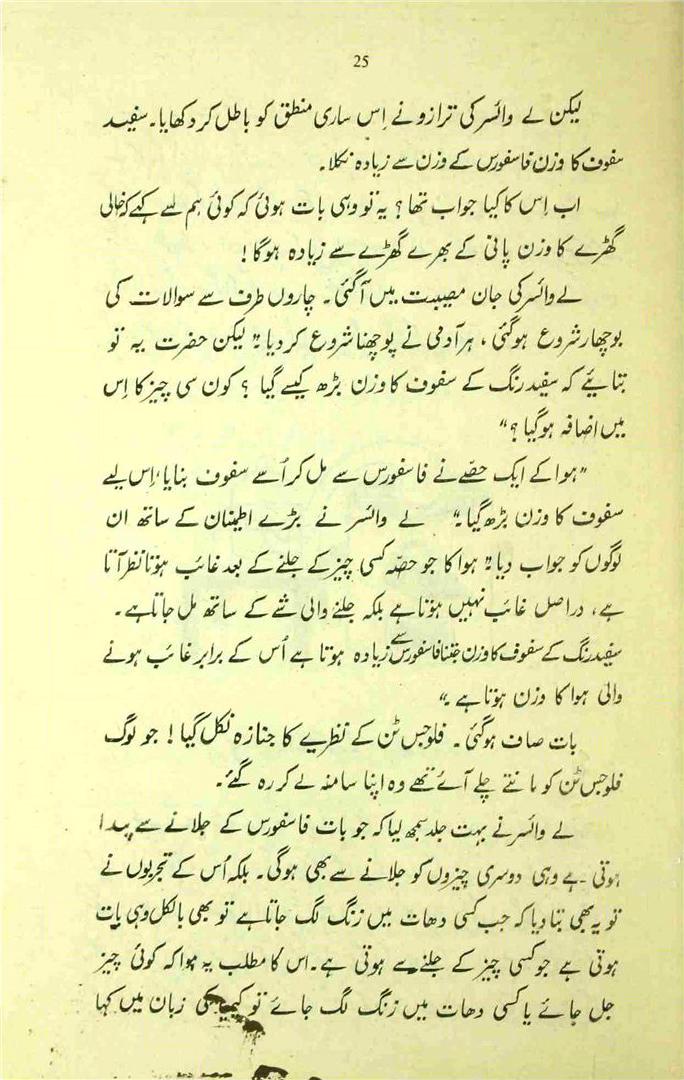 25
لیکن لے وائسر کی ترازو نے اِس ساری منطق کو باطل کر دکھایا۔ سفید
سفوف کا وزن فاسفورس کے وزن سے زیادہ نکلا۔
اب اِس کا کیا جواب تھا؟ یہ تو وہی بات ہوئی کہ کوئی ہم سے کہے کہ خالی
گھڑے کا وزن پانی کے بھرے گھڑے سے زیادہ ہوگا!
لے وائسر کی جان مصیبت میں آگئی۔ چاروں طرف سے سوالات کی
بوچھار شروع ہوگئی، ہر آدمی نے پوچھنا شروع کر دیا "لیکن حضرت یہ تو
بتائیے کہ سفید رنگ کے سفوف کا وزن بڑھ کیسے گیا؟ کون سی چیز کا اِس
میں اضافہ ہوگیا؟"
"ہوا کے ایک حصّے نے فاسفورس سے مل کر اُسے سفوف بنایا، اِس لیے
سفوف کا وزن بڑھ گیا۔" لے وائسر نے بڑے اطمینان کے ساتھ ان
لوگوں کو جواب دیا "ہوا کا جو حصّہ کسی چیز کے جلنے کے بعد غائب ہوتا نظر آتا
ہے، دراصل غائب نہیں ہوتا ہے بلکہ جلنے والی شے کے ساتھ مل جاتا ہے۔
سفید رنگ کے سفوف کا وزن جتنا فاسفورس سے زیادہ ہوتا ہے اُس کے برابر غائب ہونے
والی ہوا کا وزن ہوتا ہے۔"
بات صاف ہوگئی۔ فلوجس ٹن کے نظریے کا جنازہ نکل گیا! جو لوگ
فلوجس ٹن کو مانتے چلے آئے تھے وہ اپنا سا منہ لے کر رہ گئے۔
لے وائسر نے بہت جلد سمجھ لیا کہ جو بات فاسفورس کے جلانے سے پیدا
ہوتی ہے وہی دوسری چیزوں کو جلانے سے بھی ہوگی۔ بلکہ اُس کے تجربوں نے
تو یہ بھی بتا دیا کہ جب کسی دھات میں زنگ لگ جاتا ہے تو بھی بالکل وہی بات
ہوتی ہے جو کسی چیز کے جلنے سے ہوتی ہے۔ اس کا مطلب یہ ہوا کہ کوئی چیز
جل جائے یا کسی دھات میں زنگ لگ جائے تو کیمیا کی زبان میں کہا